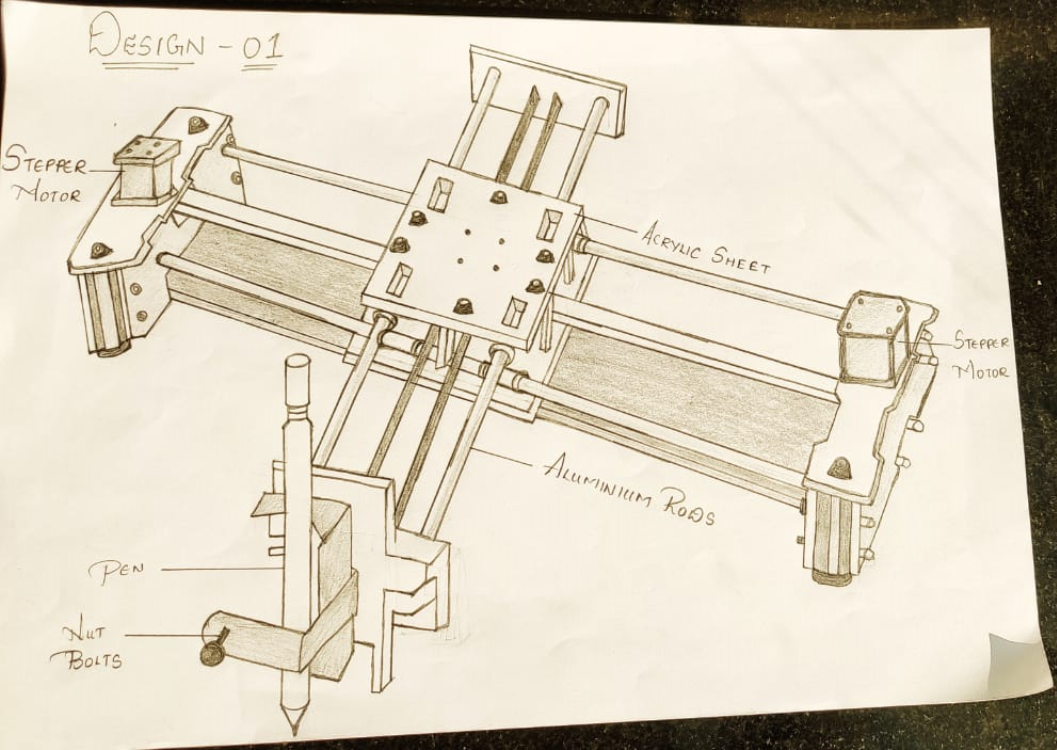 DESIGN - 01
STEPPER
MOTOR
ACRYLIC SHEET
STEPPER
MOTOR
ALUMINIUM RODS
PEN
NUT
BOLTS